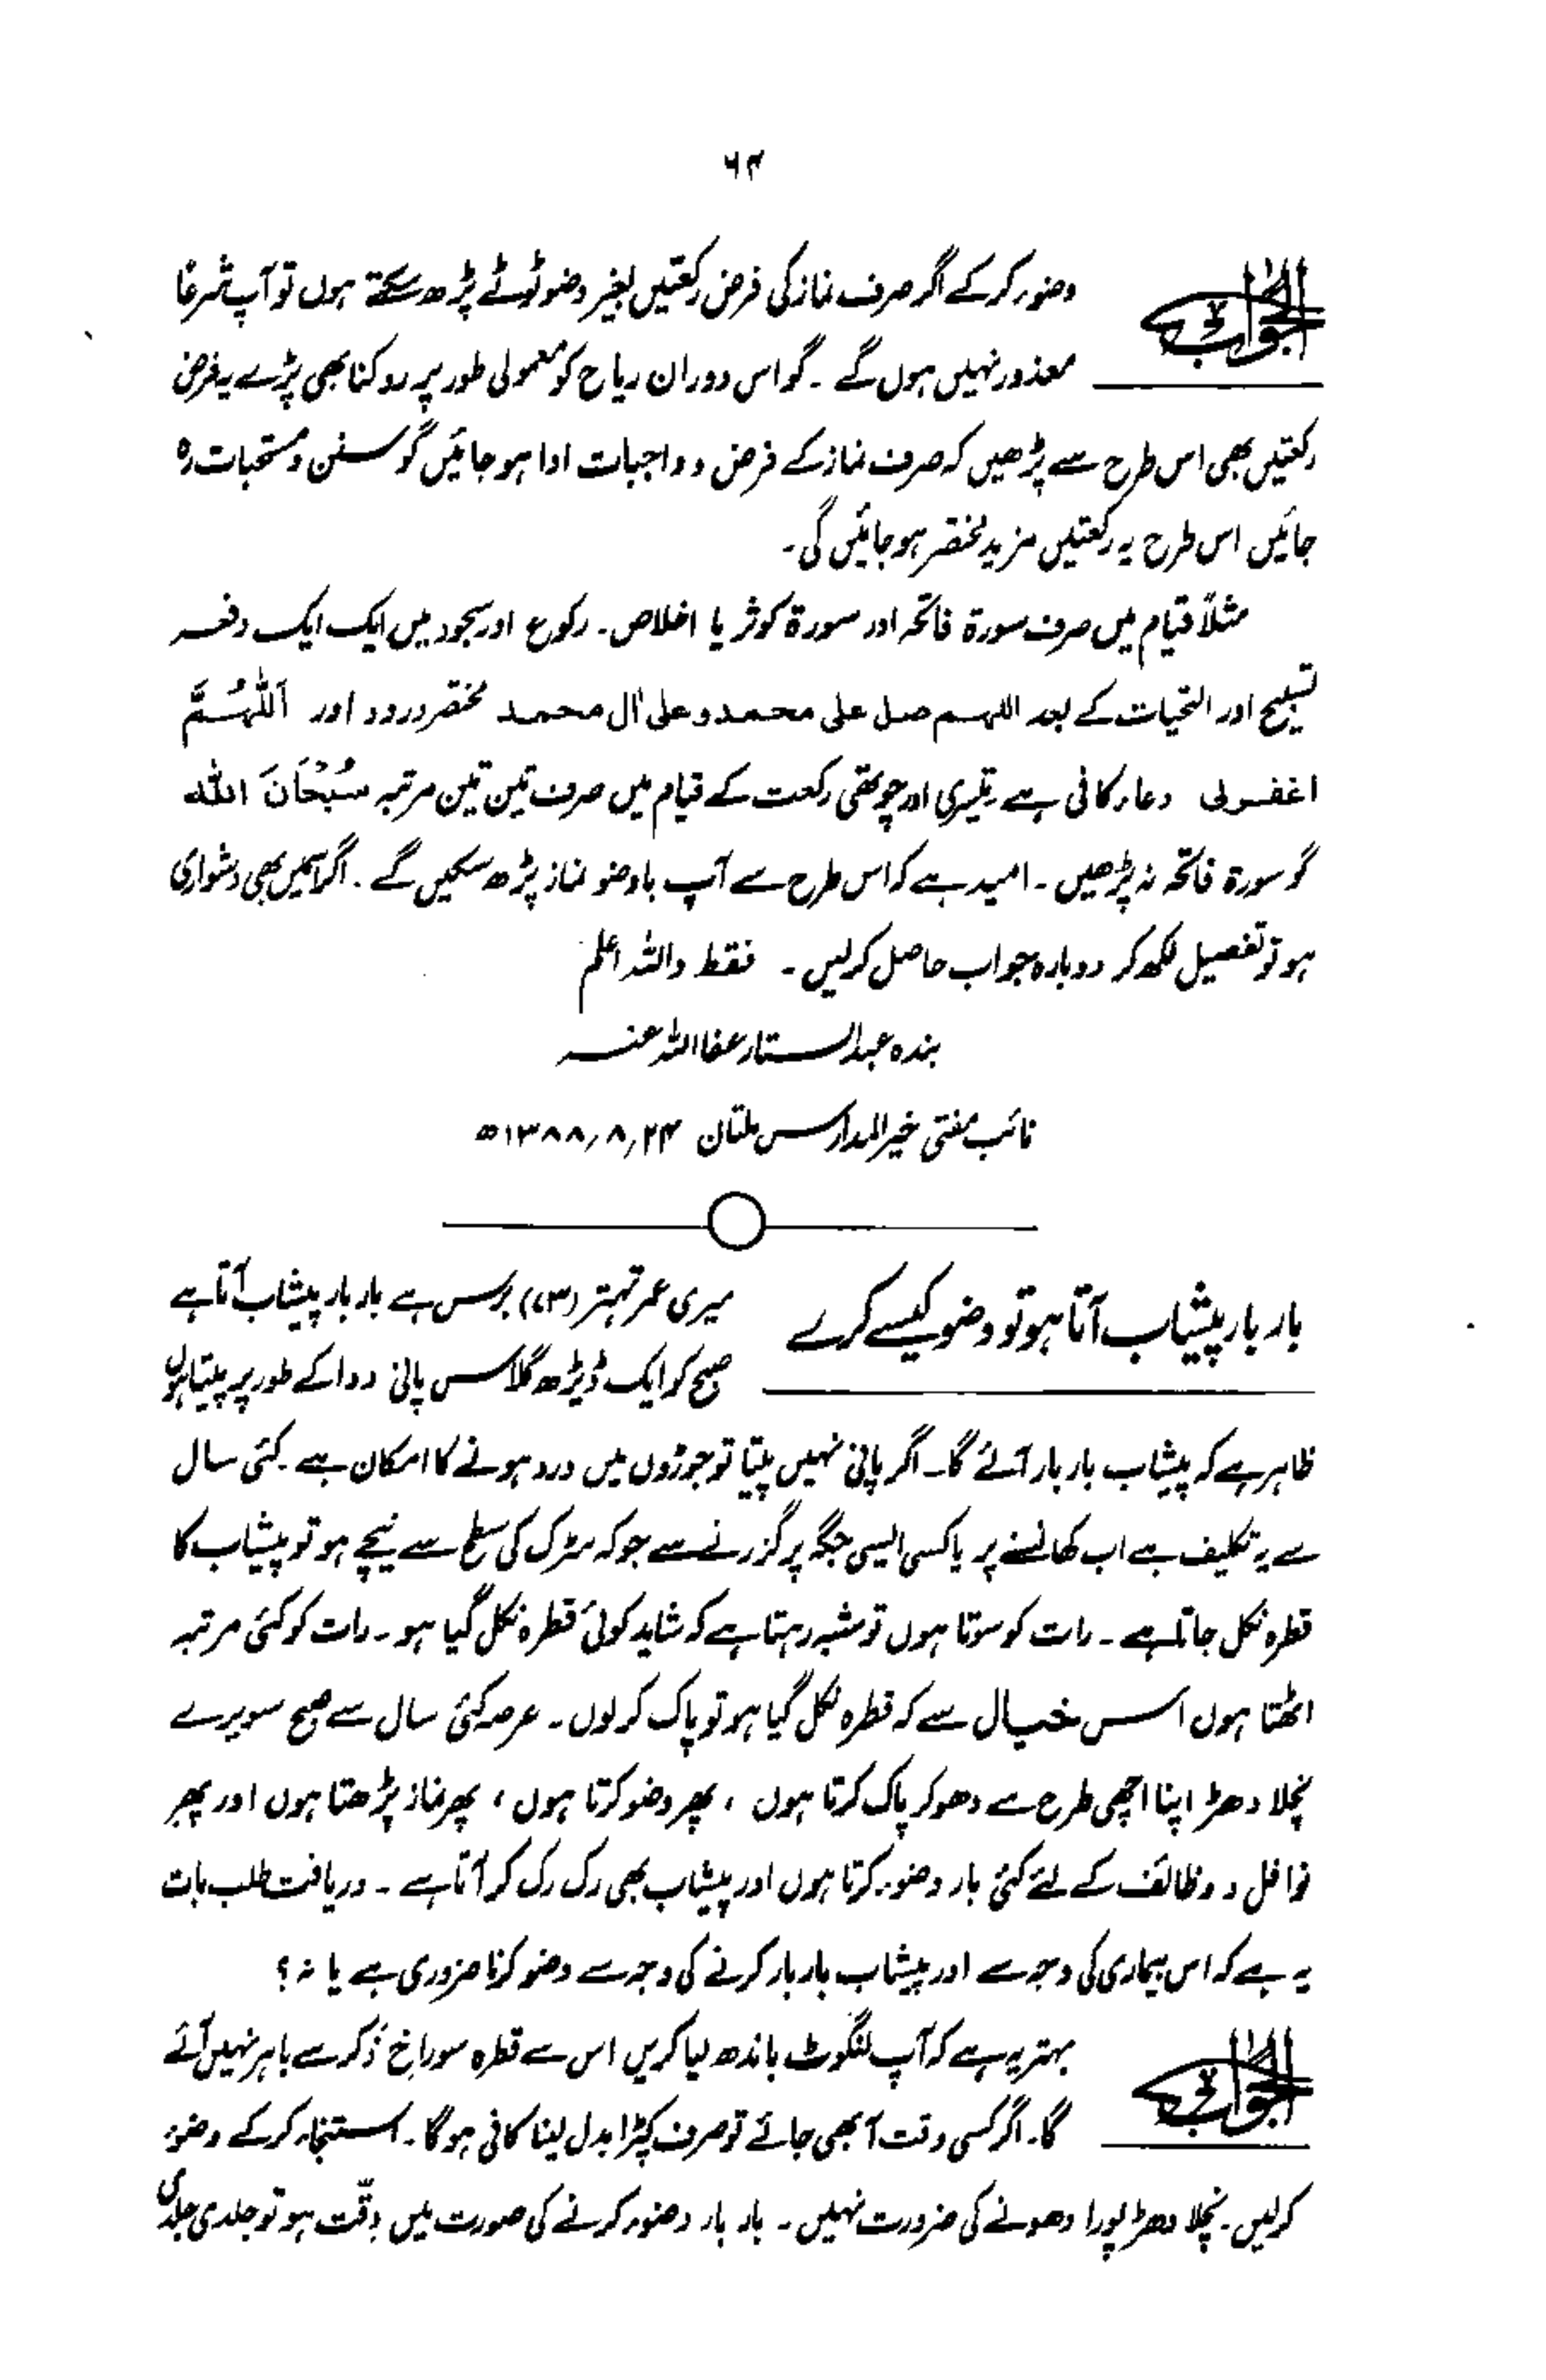 ۶۴
الجواب
وضوء کرکے اگر صرف نماز کی فرض رکعتیں بغیر وضو ٹوٹے پڑھ سکتے ہوں تو آپ شرعًا
معذور نہیں ہوں گے ۔ گو اس دوران ریاح کو معمولی طور پر روکنا بھی پڑے یہ فرض
رکعتیں بھی اس طرح سے پڑھیں کہ صرف نماز کے فرض و واجبات ادا ہو جائیں گو سنن و مستحبات رہ
جائیں اس طرح یہ رکعتیں مزید مختصر ہو جائیں گی ۔
مثلاً قیام میں صرف سورۃ فاتحہ اور سورۃ کوثر یا اخلاص ۔ رکوع اور سجود میں ایک ایک دفعہ
تسبیح اور التحیات کے بعد اللہم صل علی محمد وعلی اٰل محمد مختصر درود اور اَللّٰہُمَّ
اغفرلی دعاء کافی ہے تیسری اور چوتھی رکعت کے قیام میں صرف تین تین مرتبہ سُبْحَانَ اللہ
گو سورۃ فاتحہ نہ پڑھیں ۔ امید ہے کہ اس طرح سے آپ باوضو نماز پڑھ سکیں گے ۔ اگر اسمیں بھی دشواری
ہو تو تفصیل لکھ کر دوبارہ جواب حاصل کرلیں ۔ فقط واللہ اعلم
بندہ عبدالستار عفا اللہ عنہ
نائب مفتی خیرالمدارس ملتان ۲۴؍۸؍۱۳۸۸ھ
بار بار پیشاب آتا ہو تو وضو کیسے کرے
میری عمر تہتر (۷۳) برس ہے بار بار پیشاب آتا ہے
صبح کو ایک ڈیڑھ گلاس پانی دوا کے طور پر پیتا ہوں
ظاہر ہے کہ پیشاب بار بار آئے گا۔ اگر پانی نہیں پیتا تو جوڑوں میں درد ہونے کا امکان ہے ۔ کئی سال
سے یہ تکلیف ہے اب کھانسنے پر یا کسی ایسی جگہ پر گزرنے سے جو کہ سڑک کی سطح سے نیچے ہو تو پیشاب کا
قطرہ نکل جاتا ہے ۔ رات کو سوتا ہوں تو شبہ رہتا ہے کہ شاید کوئی قطرہ نکل گیا ہو ۔ رات کو کئی مرتبہ
اٹھتا ہوں اس خیال سے کہ قطرہ نکل گیا ہو تو پاک کر لوں ۔ عرصہ کئی سال سے صبح سویرے
نچلا دھڑ اپنا اچھی طرح سے دھو کر پاک کرتا ہوں ، پھر وضو کرتا ہوں ، پھر نماز پڑھتا ہوں اور پھر
نوافل و وظائف کے لئے کئی بار وضوء کرتا ہوں اور پیشاب بھی رک رک کر آتا ہے ۔ دریافت طلب بات
یہ ہے کہ اس بیماری کی وجہ سے اور پیشاب بار بار کرنے کی وجہ سے وضو کرنا ضروری ہے یا نہ ؟
الجواب
بہتر یہ ہے کہ آپ لنگوٹ باندھ لیا کریں اس سے قطرہ سوراخِ ذَکر سے باہر نہیں آئے
گا۔ اگر کسی وقت آ بھی جائے تو صرف کپڑا بدل لینا کافی ہوگا ۔ استنجاء کرکے وضوء
کرلیں ۔ نچلا دھڑ پورا دھونے کی ضرورت نہیں ۔ بار بار وضوء کرنے کی صورت میں دِقّت ہو تو جلدی جلدی